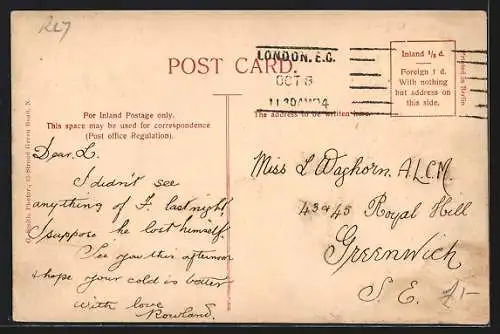 Ref
LONDON. E.C.
OCT 8
11.30AM 04
POST CARD.
Inland ½ d.
Foreign 1 d.
With nothing
but address on
this side.
Printed in Berlin
For Inland Postage only.
This space may be used for correspondence
(Post office Regulation).
The address to be written here.
Dear L.
I didn't see
anything of F. last night,
I suppose he lost himself.
See you this afternoon
& hope your cold is better
with love
Rowland.
Miss L Waghorn. A.L.C.M.
43 & 45 Royal Hill
Greenwich
S. E.
Stroud Green Road, N.